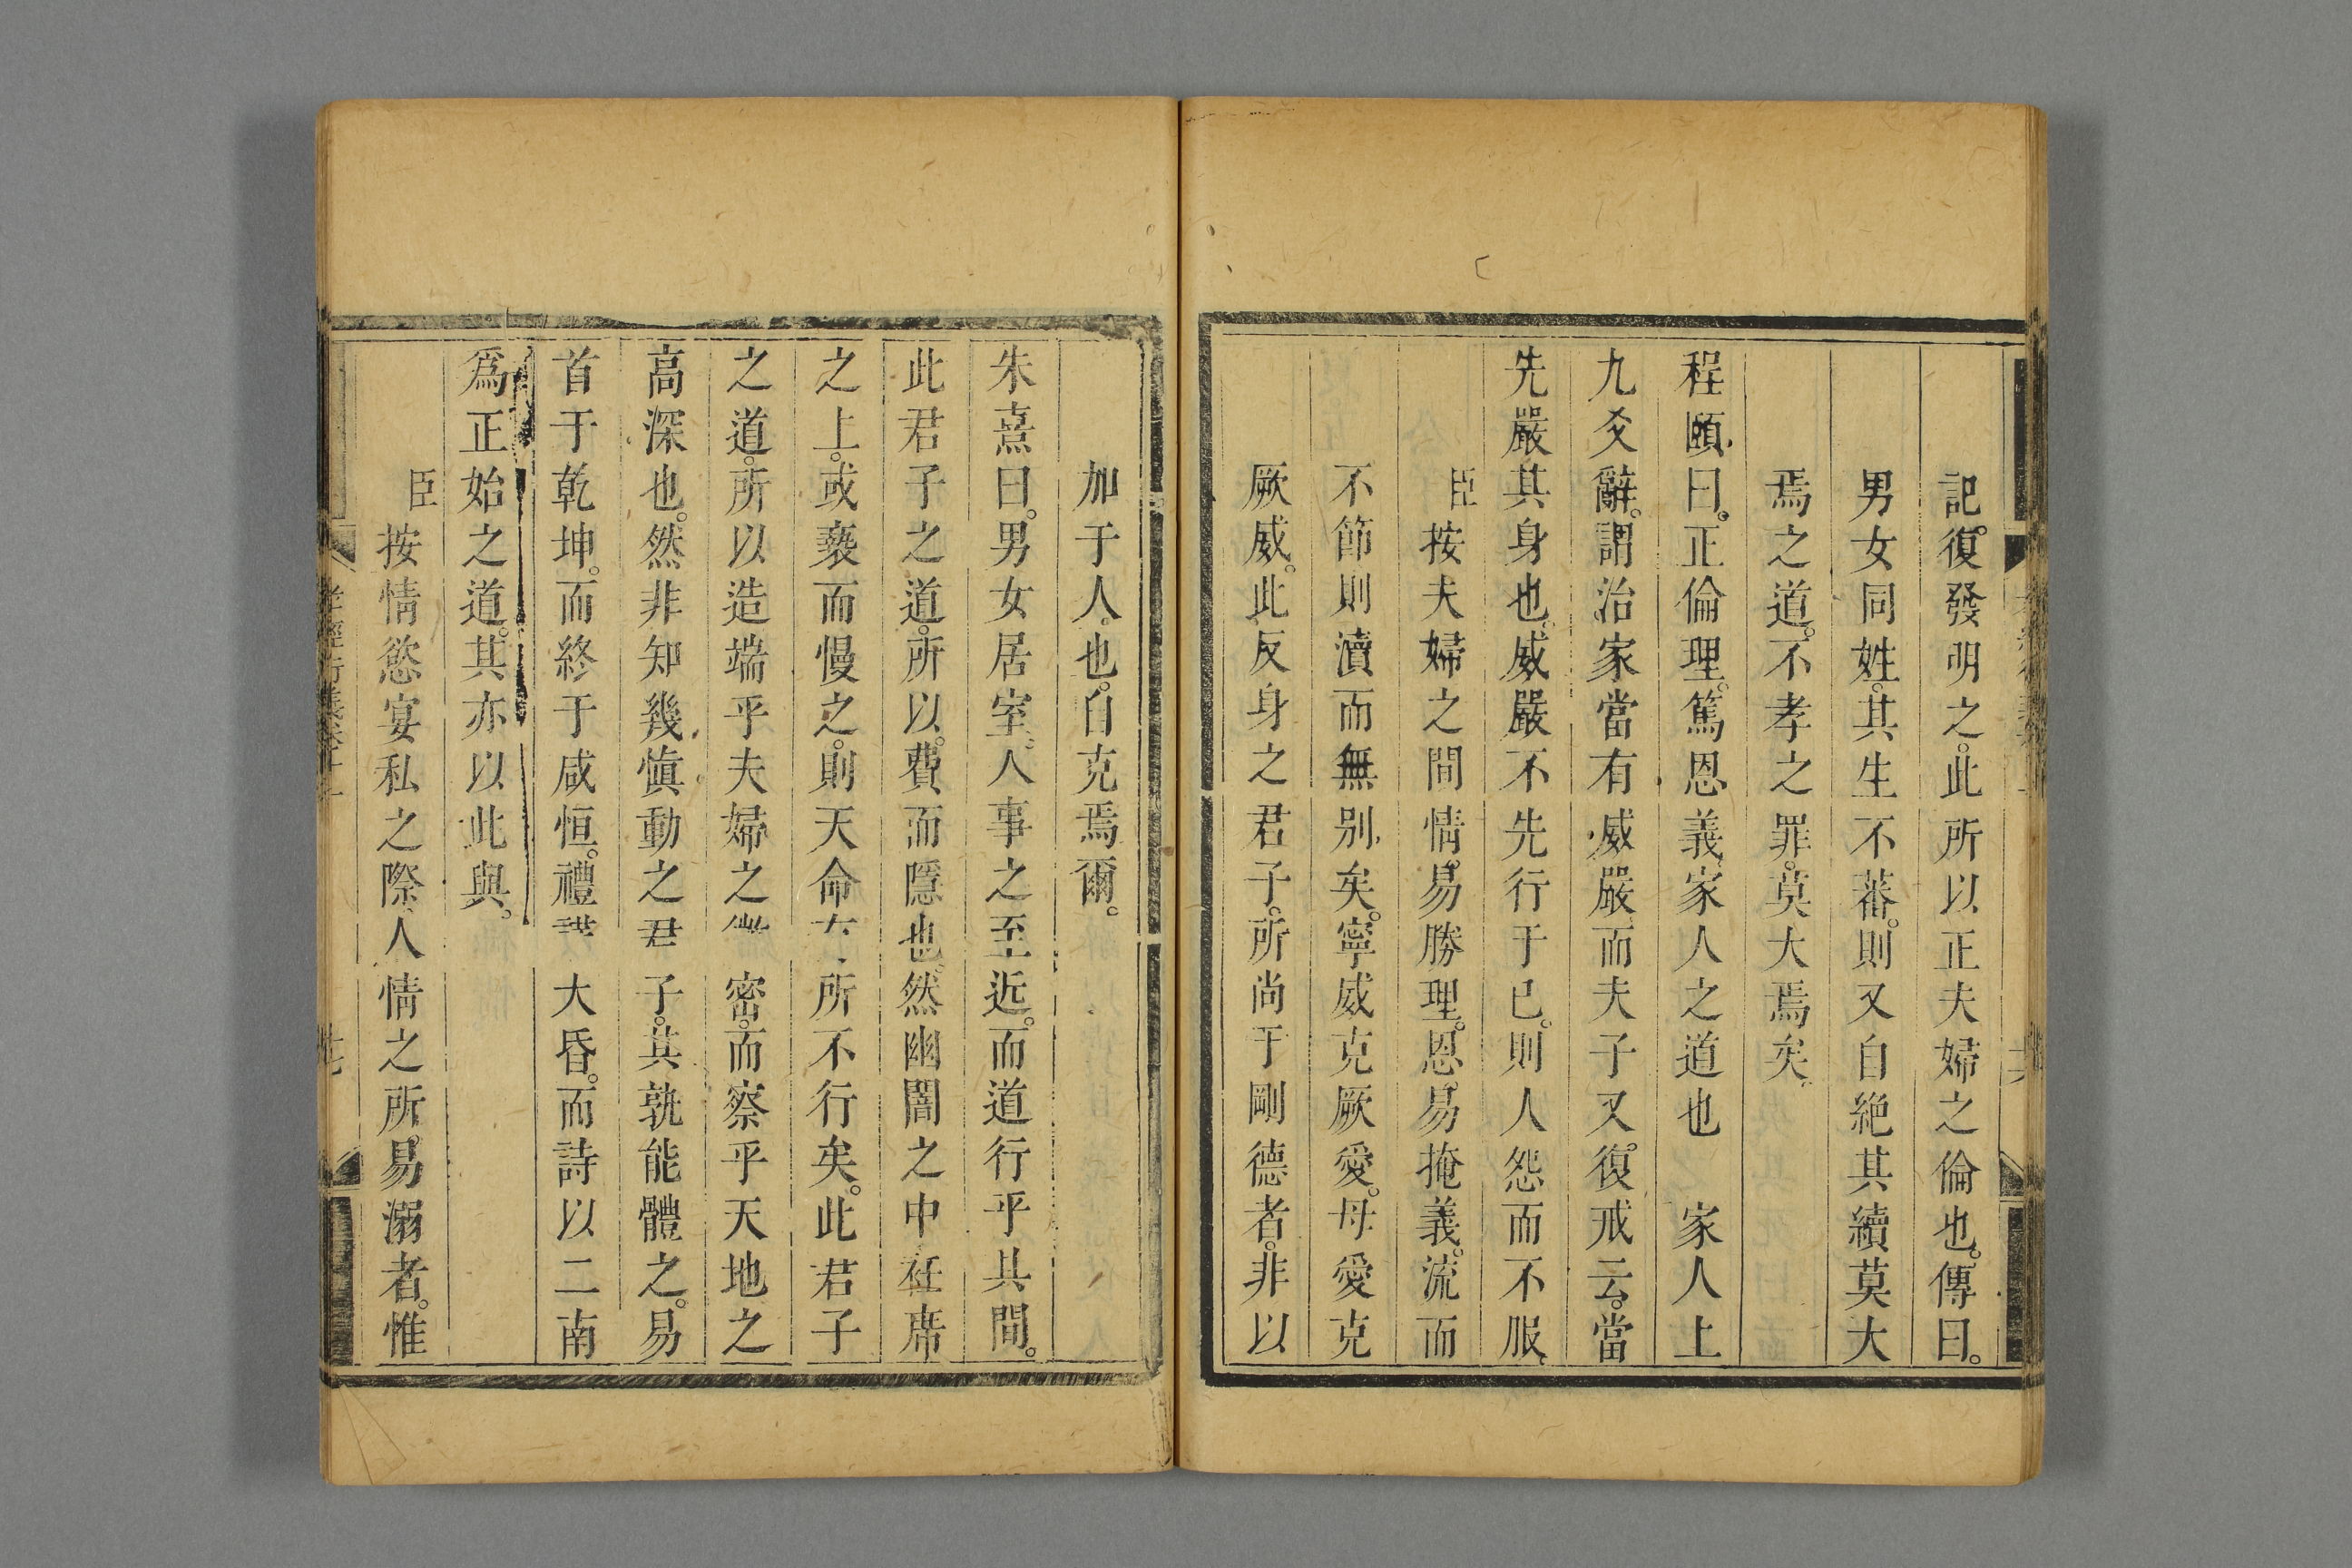 記。復發明之。此所以正夫婦之倫也。傳曰。
男女同姓。其生不蕃。則又自絶其續莫大
焉之道。不孝之罪。莫大焉矣。
程頤曰。正倫理。篤恩義。家人之道也　家人上
九爻辭。謂治家當有威嚴而夫子又。復戒云。當
先嚴其身也。威嚴不先行于已。則人怨而不服。
臣按夫婦之間情。易勝理。恩。易掩義。流而
不節則瀆而無别矣。寧威克厥愛。毋愛克
厥威。此反身之君子。所尚于剛德者。非以
加于人也。自克焉爾。
朱熹曰。男女居室。人事之至近。而道行乎其間。
此君子之道。所以。費而隱也。然幽闇之中衽席
之上。或䙝而慢之。則天命有所不行矣。此君子
之道。所以造端乎夫婦之微密。而察乎天地之
高深也。然非知幾愼動之君子。其孰能體之。易
首于乾坤。而終于咸恒。禮謹大昏。而詩以二南
爲正始之道。其亦以此與。
臣按情慾宴私之際。人情之所。易溺者。惟
孝經衍義卷十